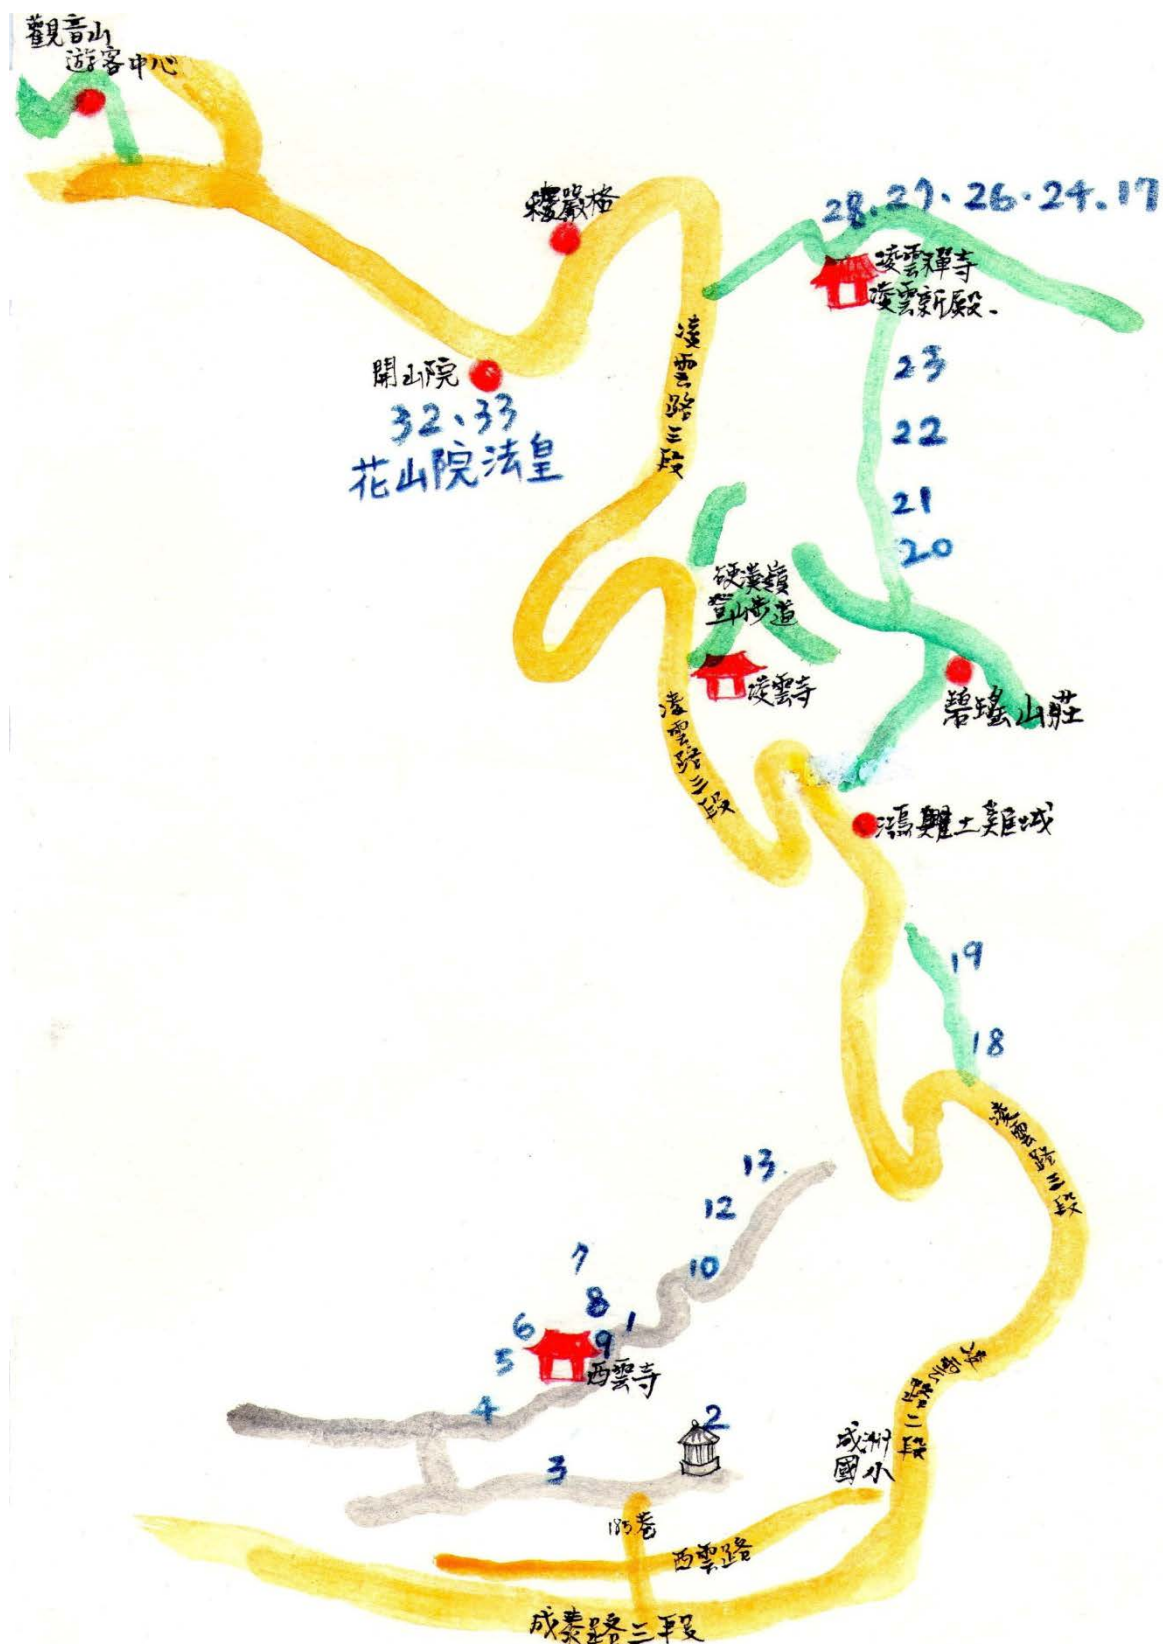 觀音山
遊客中心
28、27、26、24、17
凌雲禪寺
凌雲新殿
凌雲路三段
開山院
32、33
花山院法皇
23
22
21
20
硬漢嶺
登山步道
凌雲寺
碧瑤山莊
凌雲路三段
土雞城
19
18
凌雲路三段
13
12
10
7
8
1
6
9
5
西雲寺
4
2
3
成洲
國小
凌雲路二段
185巷
西雲路
成泰路三段